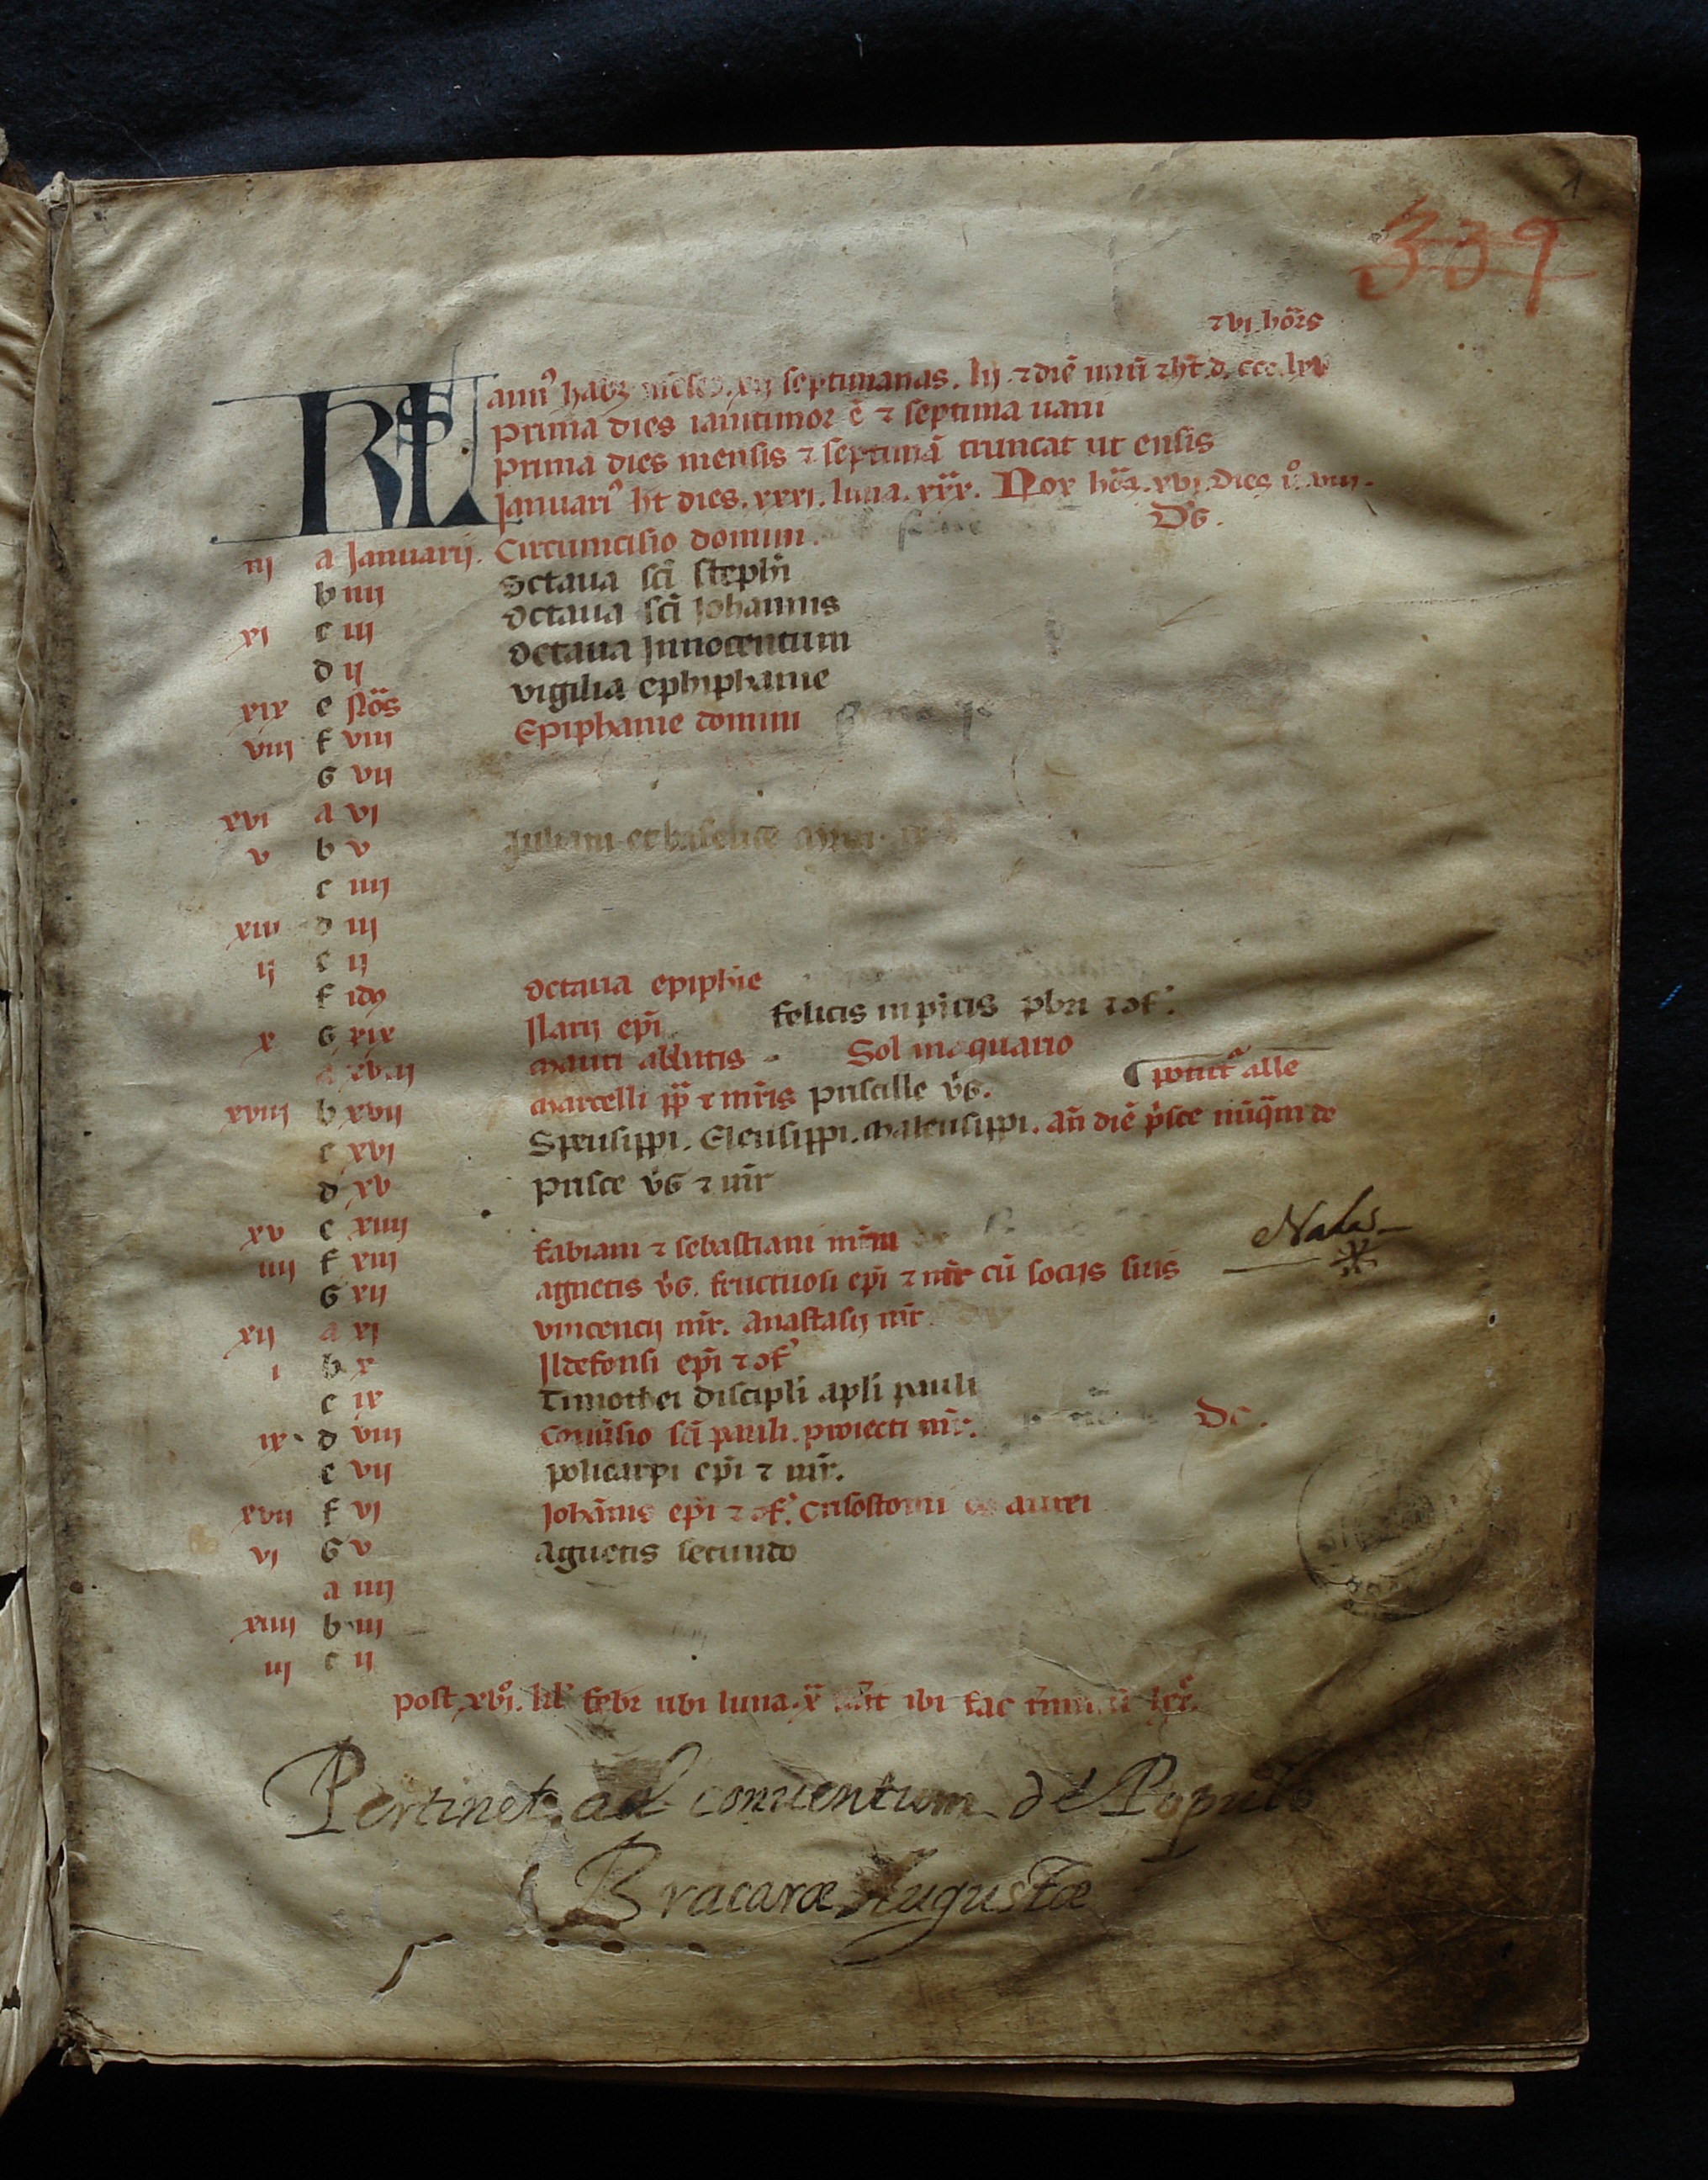 1
339
⁊ vi. hor̃s
KL annꝰ habꝫ mẽses. xij septimanas. lij. ⁊ diẽ unũ ⁊ ht̃. d. ccc. lxv
prima dies iani timor ẽ ⁊ septima uani
prima dies mensis ⁊ septimã truncat ut ensis
Januariꝰ ht dies. xxxi. luna. xxx. Nox hor̃. xvi. Dies ů. viii.
iij a Januarij. Circumcisio domini. D'G.
b iiij Octaua sc̃i steph̃i
xi c iij Octaua sc̃i Johannis
d ij Octaua Innocentum
xix e Nõs vigilia ephiphanie
viij f viij Epiphanie domini
G vij
xvi a vi
v b v Juliani et baselisce
c iiij
xiii d iij
ij e ij
f idꝰ Octaua epiphĩe
x G xix Ilarij epĩ felicis in pĩcis pbr̃i ⁊ ɔf.
a xviij Mauri abbatis Sol in aquario
xviij b xvij Marcelli pp̃ ⁊ mr̃is priscille v̓G. punctᷓ alle
c xvi Speusippi. Eleusippi. Maleusippi. an̄ diẽ p̓sce nũq̃m de
d xv prisce v̓G ⁊ mr̃
xv e xiiij
iiij f xiij fabiani ⁊ sebastiani mr̃m
G xij agnetis v̓G. fructuosi epĩ ⁊ mr̃ cũ socijs suis
xij a xi vincencij mr̃. Anastasij mr̃
i b x Ildefonsi epĩ ⁊ ɔf'
c ix Timothei discipli apli pauli
ix d viij Conũsio sc̃i pauli. proiecti mr̃. D'G.
e vij policarpi epĩ ⁊ mr̃.
xvij f vi Johãnis epĩ ⁊ ɔf'. Crisostomi os aurei
vi G v Agnetis secundo
a iiij
xiiij b iij
iij c ij
post xvi. kl' febr ubi luna. x ibi fac
Pertinet ad conuentum de Populo
Bracaræ Augustæ